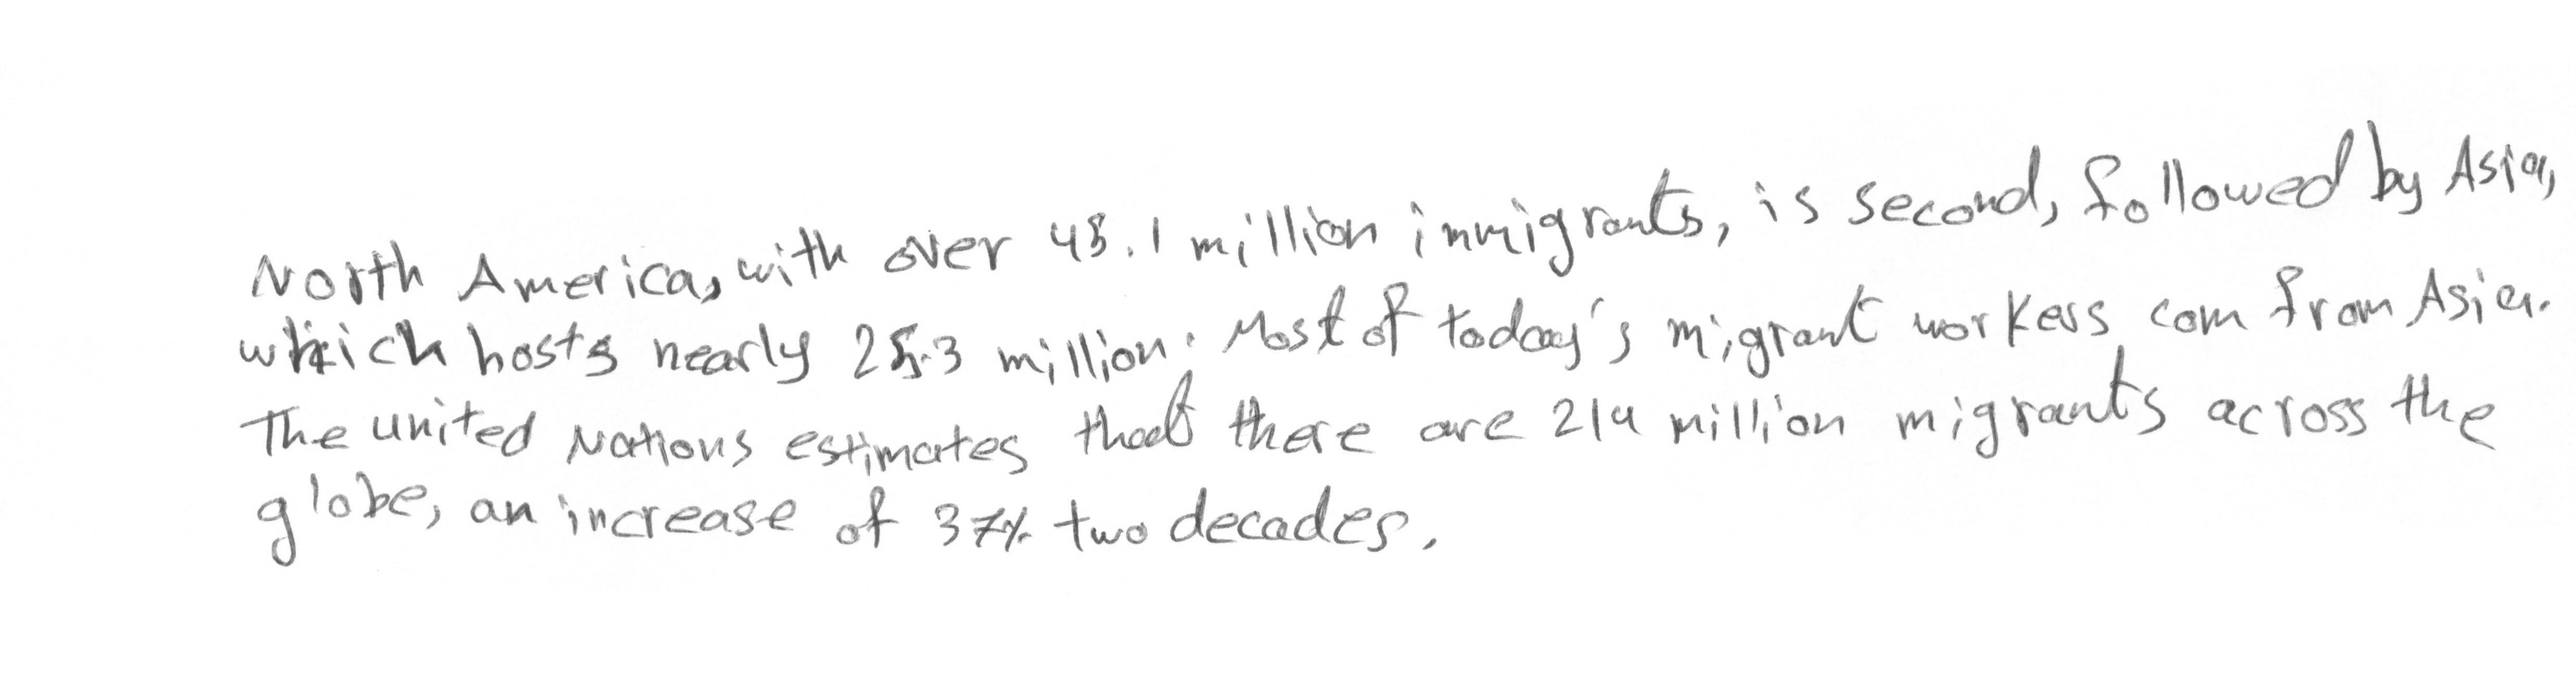 North America, with over 45.1 million immigrants, is second, followed by Asia,
which hosts nearly 25.3 million. Most of today's migrant workers com from Asia.
The united Nations estimates that there are 214 million migrants across the
globe, an increase of 37% two decades.